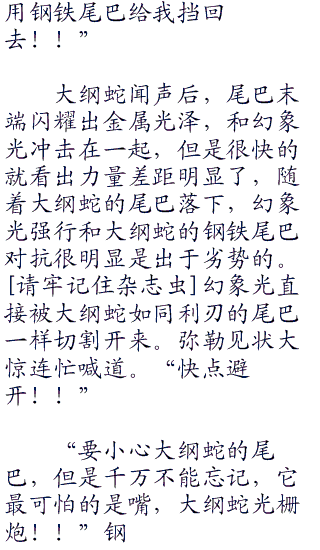 用钢铁尾巴给我挡回
去！！”
大纲蛇闻声后，尾巴末
端闪耀出金属光泽，和幻象
光冲击在一起，但是很快的
就看出力量差距明显了，随
着大纲蛇的尾巴落下，幻象
光强行和大纲蛇的钢铁尾巴
对抗很明显是出于劣势的。
[请牢记住杂志虫]幻象光直
接被大纲蛇如同利刃的尾巴
一样切割开来。弥勒见状大
惊连忙喊道。“快点避
开！！”
“要小心大纲蛇的尾
巴，但是千万不能忘记，它
最可怕的是嘴，大纲蛇光栅
炮！！”钢